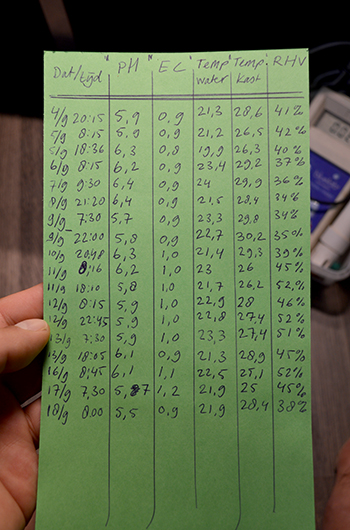 Dat/tijd "PH" "EC" "Temp water "Temp" kast RHV
4/9 20:15 5,9 0,9 21,3 28,6 41%
5/9 8:15 5,9 0,9 21,2 26,5 42%
5/9 18:36 6,3 0,8 19,9 26,3 40%
6/9 8:15 6,2 0,9 23,4 29,2 37%
7/9 9:30 6,4 0,9 24 29,9 36%
8/9 21:20 6,4 0,9 21,5 28,4 34%
9/9 7:30 5,7 0,9 23,3 29,8 34%
9/9 22:00 5,8 0,9 22,7 30,2 35%
10/9 20:48 6,3 1,0 21,4 29,3 39%
11/9 8:16 6,2 1,0 23 26 45%
11/9 18:10 5,8 1,0 21,7 26,2 52%
12/9 8:15 5,9 1,0 22,9 28 46%
12/9 22:45 5,9 1,0 22,8 27,4 52%
13/9 7:30 5,9 1,0 23,3 27,4 51%
13/9 18:05 6,1 0,9 21,3 28,9 45%
16/9 8,45 6,1 1,1 22,5 25,1 52%
17/9 7,30 5,7 1,2 21,9 25 45%
18/9 8.00 5,5 0,9 21,9 28,4 38%